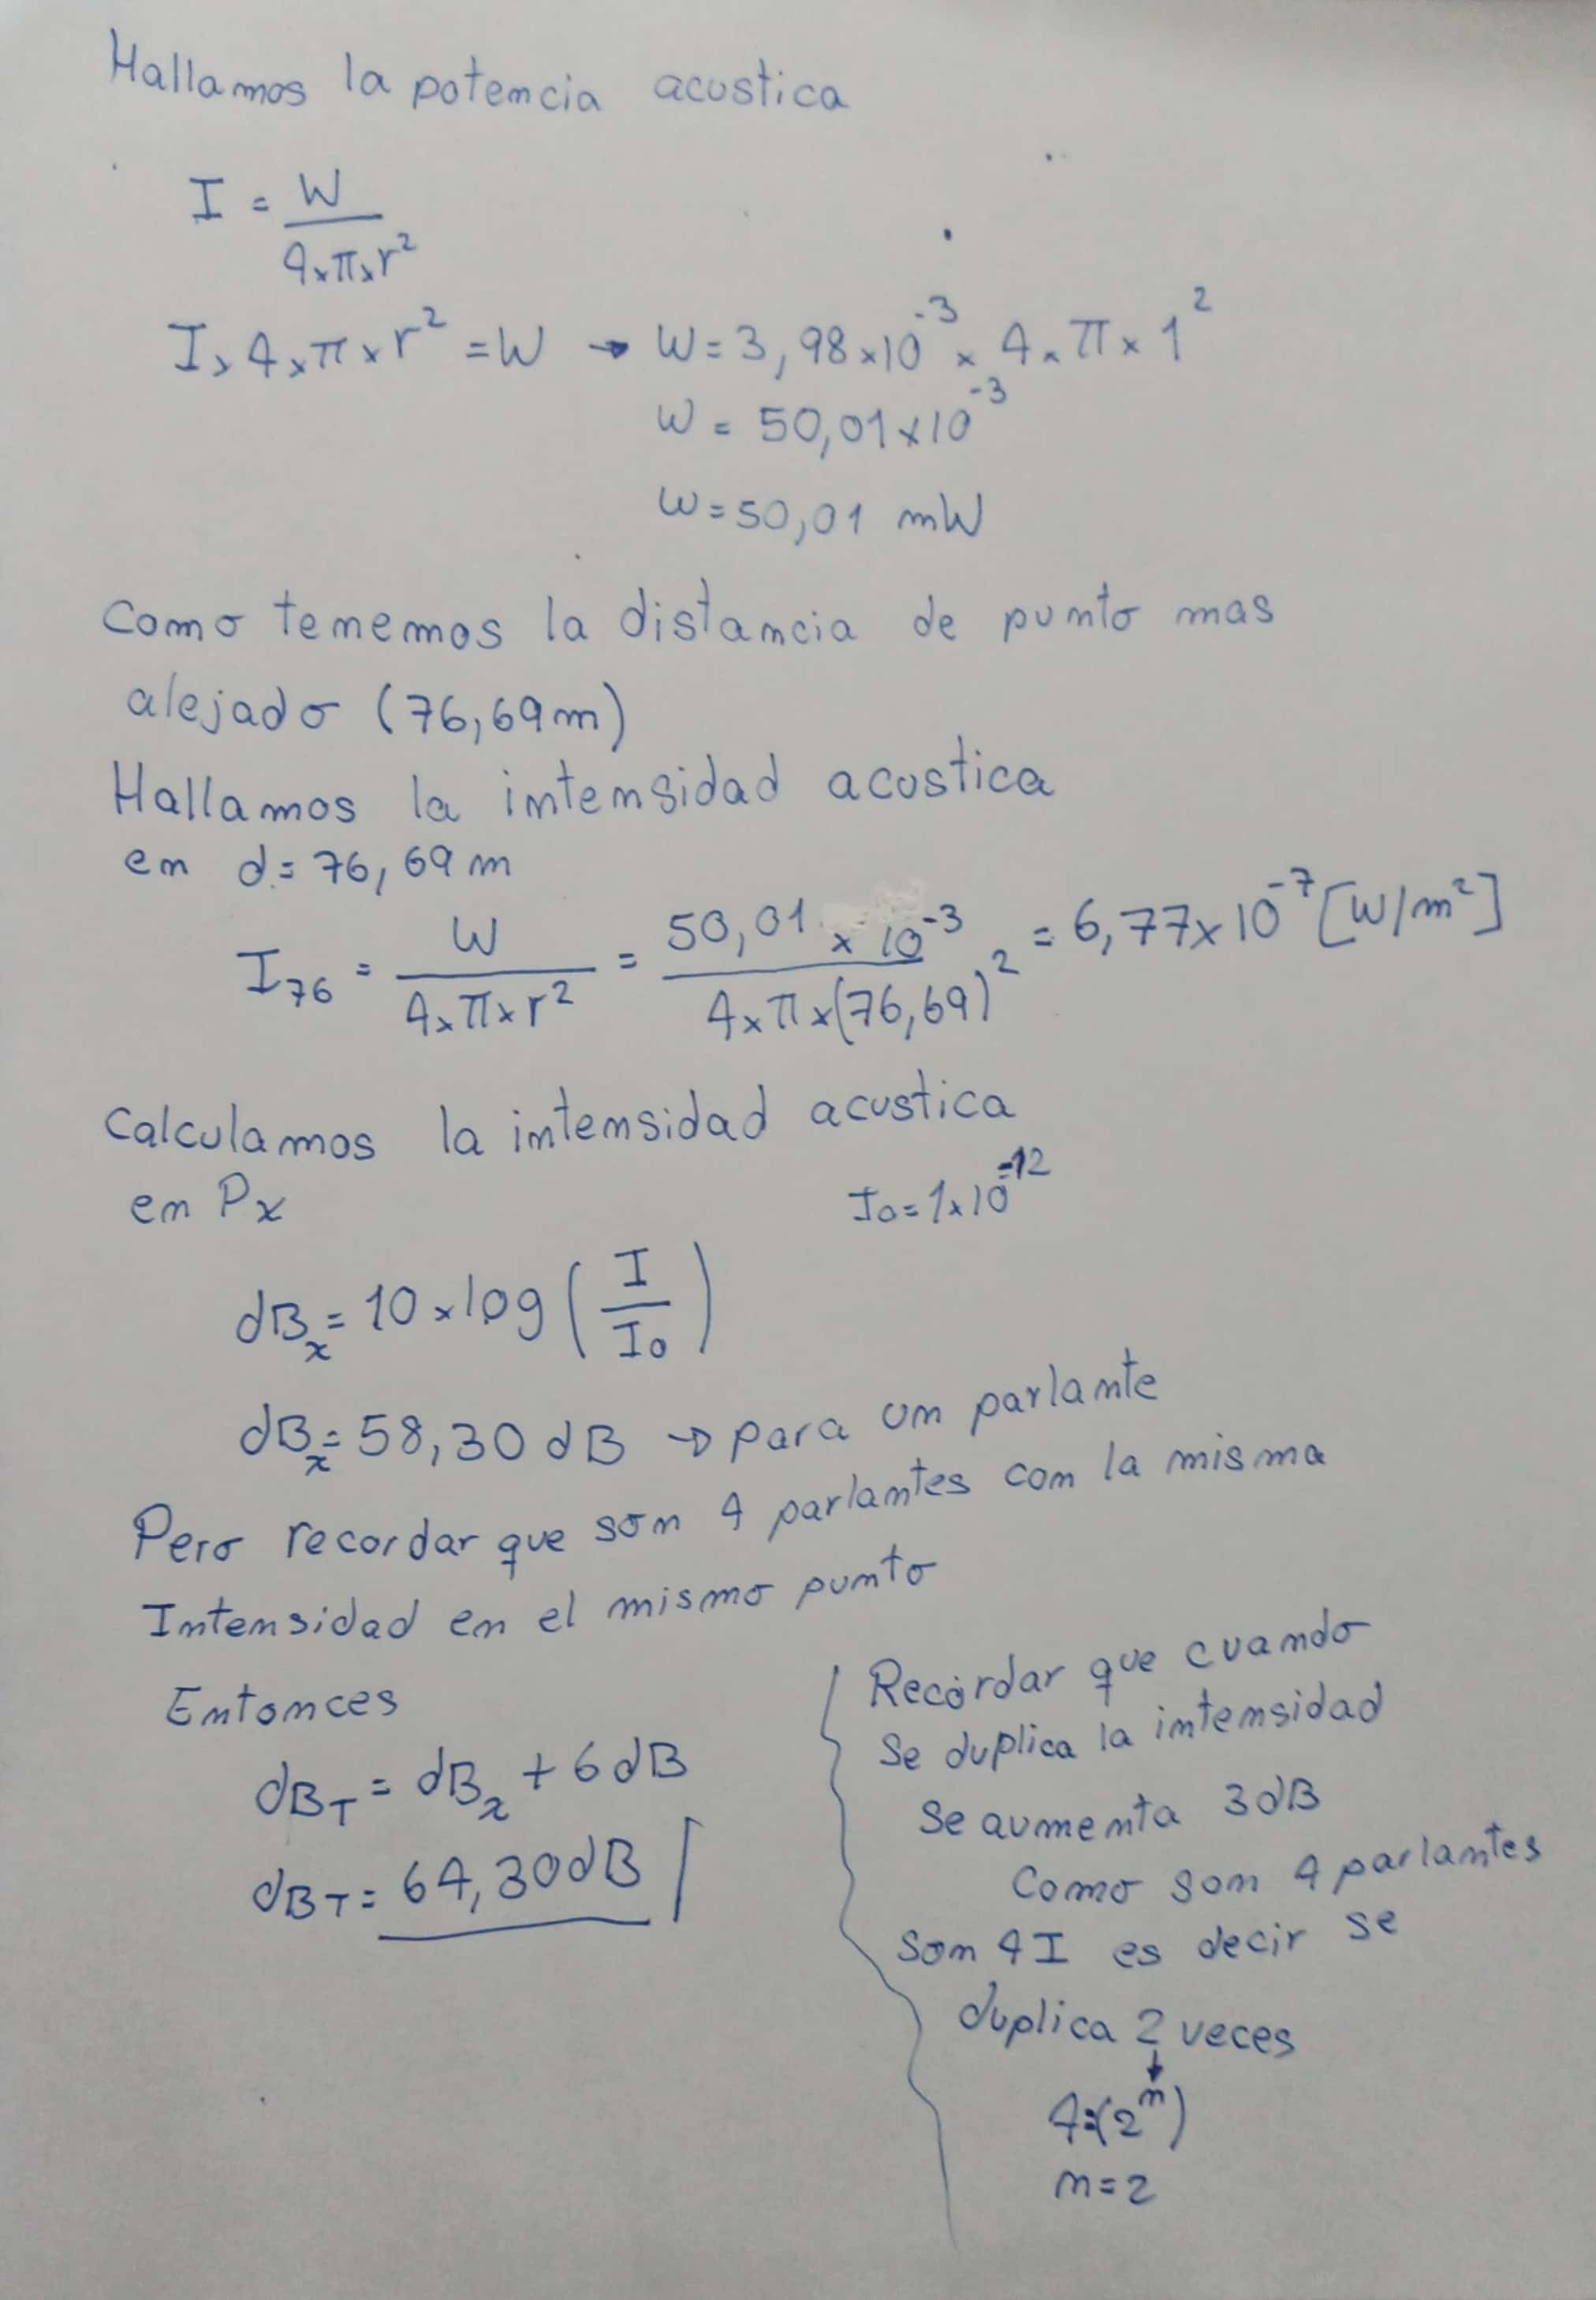 Hallamos la potencia acustica
I = W / 4×π×r²
I×4×π×r² = W → W = 3,98×10⁻³ × 4×π×1²
W = 50,01×10⁻³
W = 50,01 mW
Como tenemos la distancia de punto mas
alejado (76,69m)
Hallamos la intensidad acustica
en d = 76,69m
I₇₆ = W / 4×π×r² = 50,01 × 10⁻³ / 4×π×(76,69)² = 6,77×10⁻⁷ [W/m²]
Calculamos la intensidad acustica
en Px
I₀ = 1×10⁻¹²
dBₓ = 10×log (I / I₀)
dBₓ = 58,30 dB → para un parlante
Pero recordar que son 4 parlantes con la misma
Intensidad en el mismo punto
Entonces
dB_T = dBₓ + 6dB
dB_T = 64,30dB
Recordar que cuando
Se duplica la intensidad
Se aumenta 3dB
Como son 4 parlantes
Son 4I es decir se
duplica 2 veces
4=(2ⁿ)
n=2